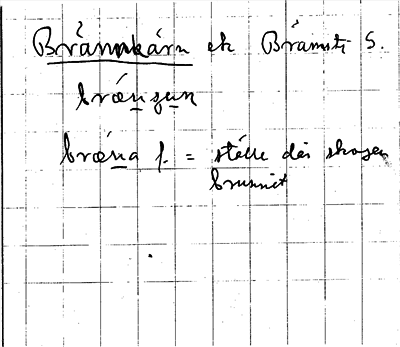 Brånnkärn ek Bråmsti S.
bræṉgu̱n
bræṉa f. = ställe där skogen
brunnit